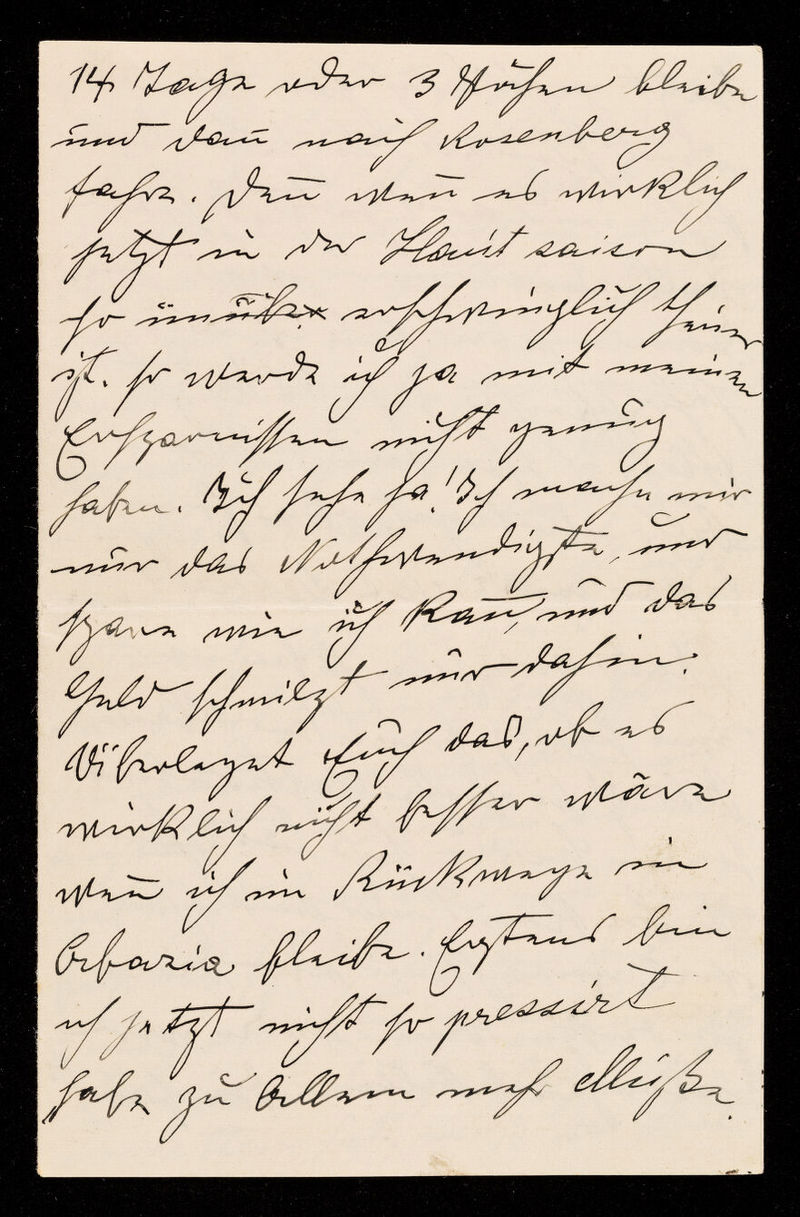 14 Tage oder 3 Wochen bleibe
und dan̄ nach Rosenberg
fahre. Den̄ wen̄ es wirklich
jetzt in der Hautsaison
so un erschwinglich theuer
ist. so werde ich ja mit meinen
Ersparnissen nicht genug
haben. Ich sehe ja! Ich mache mir
nur das Nothwendigste, und
spare wie ich kan̄, und das
Geld schmilzt nur dahin.
Überleget Euch das, ob es
wirklich nicht besser wäre
wen̄ ich im Rückwege in
Abazia bleibe. Erstens bin
ich jetzt nicht so pressirt
habe zu Allem mehr Muße.